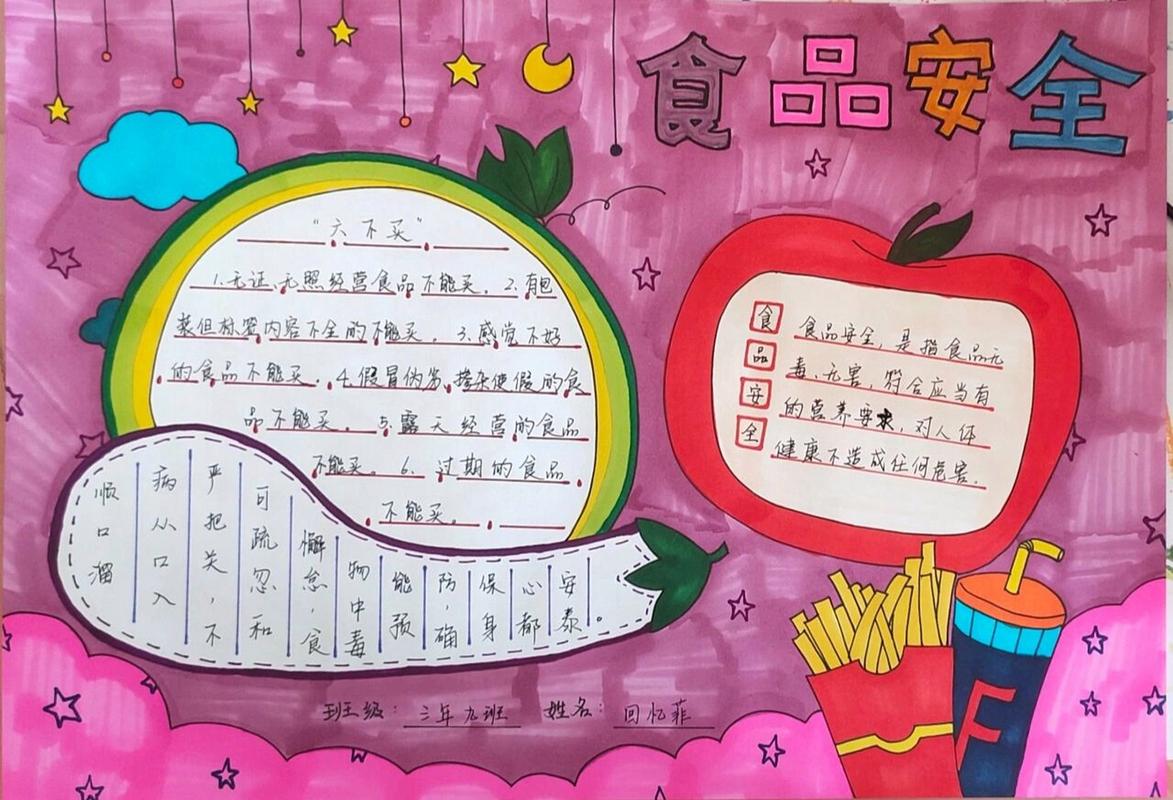 食品安全
"六不买"
1.无证、无照经营食品不能买。2.有包
装但标签内容不全的不能买。3.感觉不好
的食品不能买。4.假冒伪劣、掺杂使假的食
品不能买。5.露天经营的食品
不能买。6.过期的食品
不能买。
食品安全
食品安全，是指食品无
毒、无害，符合应当有
的营养要求，对人体
健康不造成任何危害。
顺口溜
病从口入
严把关，不
可疏忽和
懈怠，食
物中毒
能预
防，确
保身
心都
安泰。
班级：三年九班 姓名：回忆菲
F